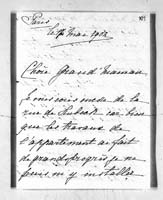 Paris
le 7 Mai 1902
Chère Grand Maman
Je m'occupe de la
rue de Lubeck car bien
que les travaux de
l'appartement ait fait
de grands progrès je ne
puis m'y installer